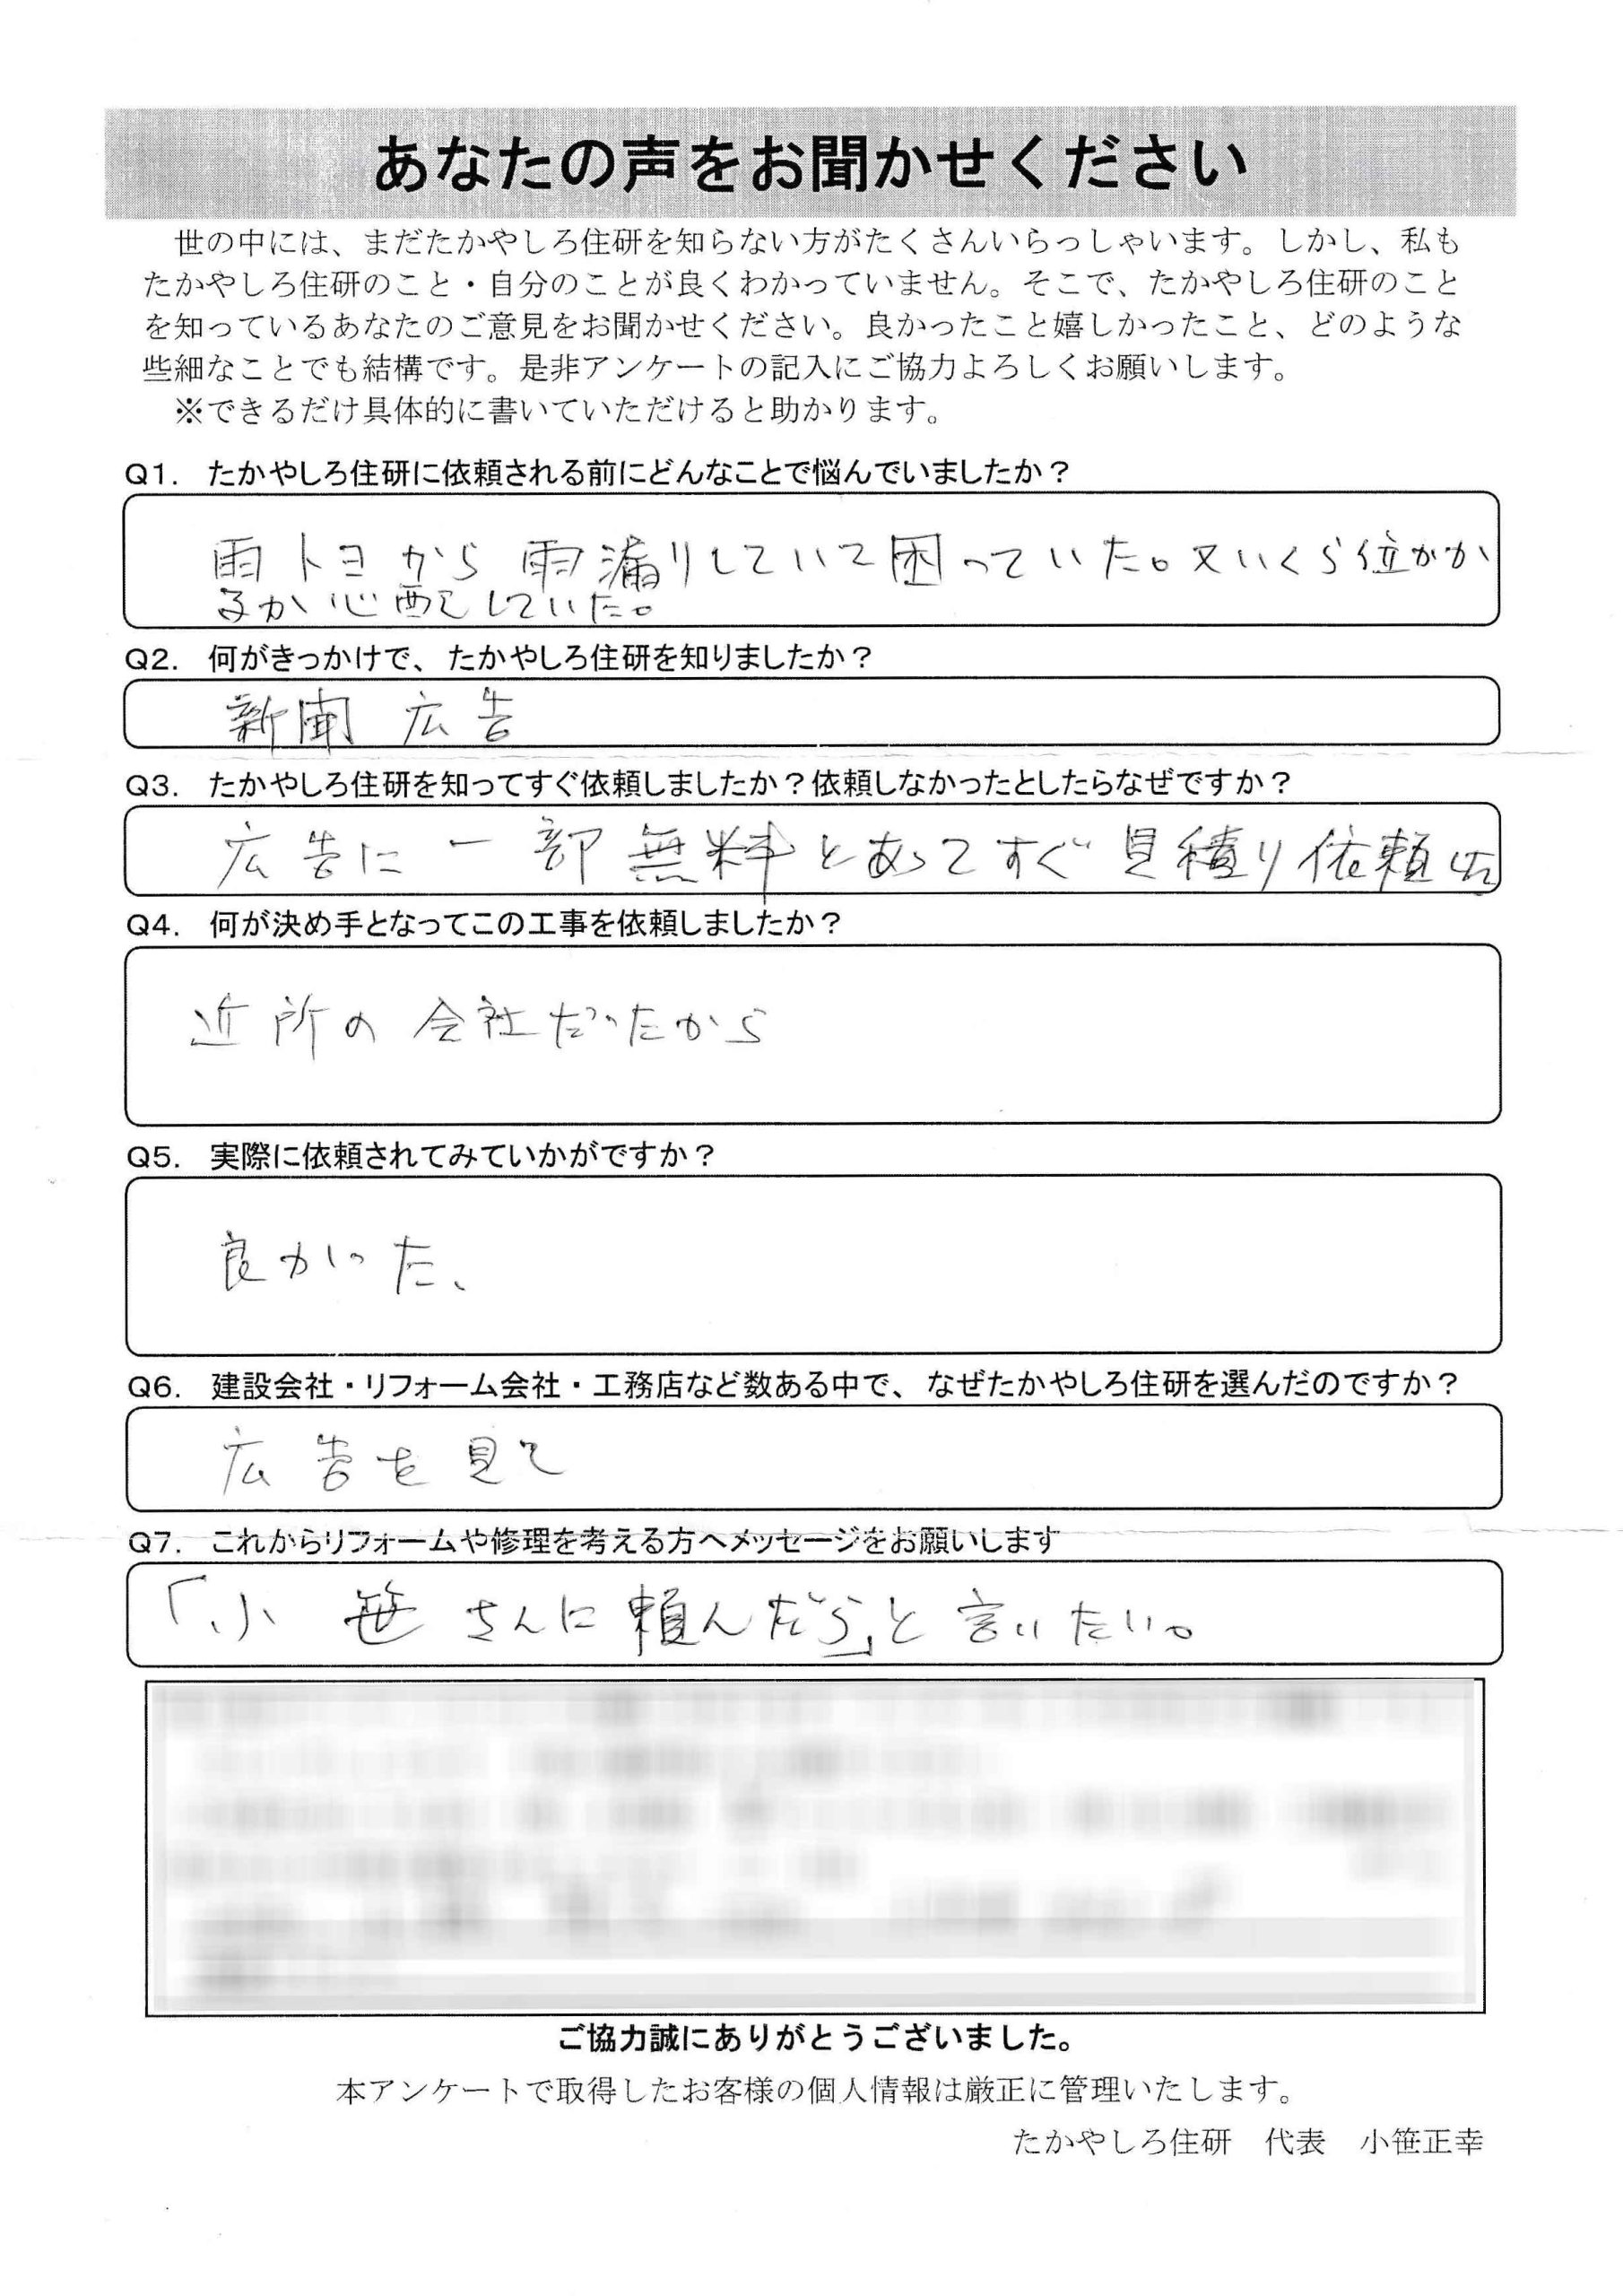 あなたの声をお聞かせください
世の中には、まだたかやしろ住研を知らない方がたくさんいらっしゃいます。しかし、私も
たかやしろ住研のこと・自分のことが良くわかっていません。そこで、たかやしろ住研のこと
を知っているあなたのご意見をお聞かせください。良かったこと嬉しかったこと、どのような
些細なことでも結構です。是非アンケートの記入にご協力よろしくお願いします。
※できるだけ具体的に書いていただけると助かります。
Q1. たかやしろ住研に依頼される前にどんなことで悩んでいましたか？
雨トヨから雨漏りしていて困っていた。又いくら位かか
るか心配していた。
Q2. 何がきっかけで、たかやしろ住研を知りましたか？
新聞広告
Q3. たかやしろ住研を知ってすぐ依頼しましたか？依頼しなかったとしたらなぜですか？
広告に一部無料とあってすぐ見積り依頼した
Q4. 何が決め手となってこの工事を依頼しましたか？
近所の会社だったから
Q5. 実際に依頼されてみていかがですか？
良かった、
Q6. 建設会社・リフォーム会社・工務店など数ある中で、なぜたかやしろ住研を選んだのですか？
広告を見て
Q7. これからリフォームや修理を考える方へメッセージをお願いします
「小笹さんに頼んだら」と言いたい。
ご協力誠にありがとうございました。
本アンケートで取得したお客様の個人情報は厳正に管理いたします。
たかやしろ住研　代表　小笹正幸